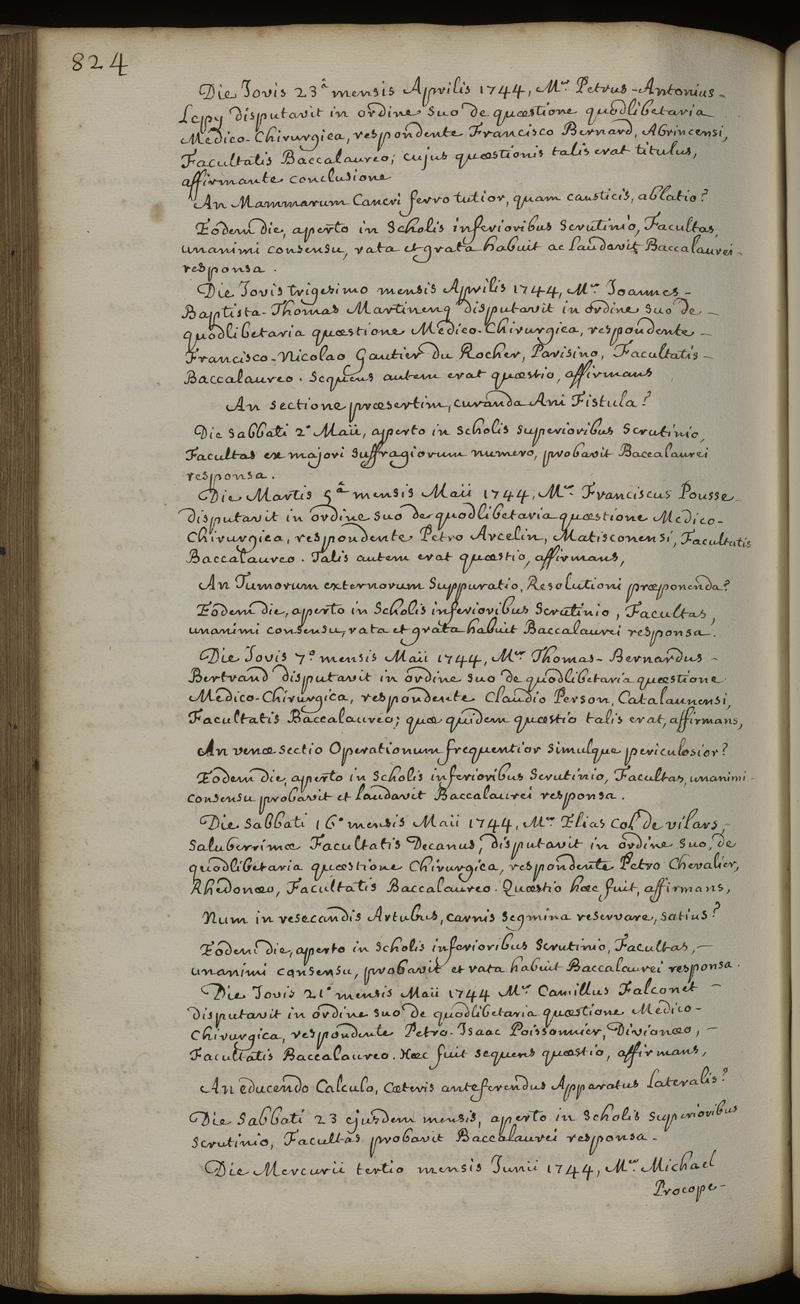 824
Die Jovis 23â mensis Aprilis 1744, Mer Petrus-Antonius-
Lepy disputavit in ordine suo de quæstione quodlibetaria
Medico-Chirurgica, respondente Francisco Bernard, Abrincensi,
Facultatis Baccalaureo; cujus quæstionis talis erat titulus,
affirmante conclusione
An Mammarum Cancri ferro tutior, quam causticis, ablatio?
Eodem die, aperto in Scholis inferioribus Scrutinio, Facultas,
unanimi consensu, rata et grata habuit ac laudavit Baccalaurei-
responsa.
Die Jovis trigesimo mensis Aprilis 1744, Mer Joannes-
Baptista-Thomas Martinenq disputavit in ordine suo de-
quodlibetaria quæstione Medico-Chirurgica, respondente-
Francisco-Nicolao Gautier du Rocher, Parisino, Facultatis-
Baccalaureo. Sequens autem erat quæstio, affirmans
An sectione præsertim, curanda Ani Fistula?
Die Sabbati 2a Maii, aperto in Scholis superioribus Scrutinio,
Facultas ex majori suffragiorum numero, probavit Baccalaurei
responsa.
Die Martis 5â mensis Maii 1744, Mer Franciscus Pousse-
disputavit in ordine suo de quodlibetaria quæstione Medico-
Chirurgica, respondente Petro Arcelin, Matisconensi, Facultatis
Baccalaureo. Talis autem erat quæstio, affirmans,
An Tumorum externorum Suppuratio, Resolutioni præponenda?
Eodem die, aperto in Scholis inferioribus Scrutinio, Facultas,
unanimi consensu, rata et grata habuit Baccalaurei responsa.
Die Jovis 7a mensis Maii 1744, Mer Thomas-Bernardus-
Bertrand disputavit in ordine suo de quodlibetaria quæstione
Medico-Chirurgica, respondente Claudio Person, Catalaunensi,
Facultatis Baccalaureo; quæ quidem quæstio talis erat, affirmans,
An venæ sectio Operationum frequentior simulque periculosior?
Eodem die, aperto in Scholis inferioribus Scrutinio, Facultas, unanimi-
consensu probavit et laudavit Baccalaurei responsa.
Die Sabbati 16a mensis Maii 1744, Mer Elias Col de vilars,
Saluberrimæ Facultatis Decanus, disputavit in ordine suo, de
quodlibetaria quæstione Chirurgica, respondente Petro Chevalier,
Rhedonæo, Facultatis Baccalaureo. Quæstio hæc fuit, affirmans,
Num in resecandis Artubus, carnis segmina reservare, satius?
Eodem die, aperto in Scholis inferioribus Scrutinio, Facultas,-
unanimi consensu, probavit et rata habuit Baccalaurei responsa.
Die Jovis 21a mensis Maii 1744 Mer Camillus Falconet-
disputavit in ordine suo de quodlibetaria quæstione Medico-
Chirurgica, respondente Petro-Isaac Poissonnier, Divionæo,-
Facultatis Baccalaureo. Hæc fuit sequens quæstio, affirmans,
An educendo Calculo, Cæteris anteferendus Apparatus Lateralis?
Die Sabbati 23 ejusdem mensis, aperto in Scholis superioribus
Scrutinio, Facultas probavit Baccalaurei responsa.
Die Mercurii tertio mensis Junii 1744, Mer Michael
Procope-